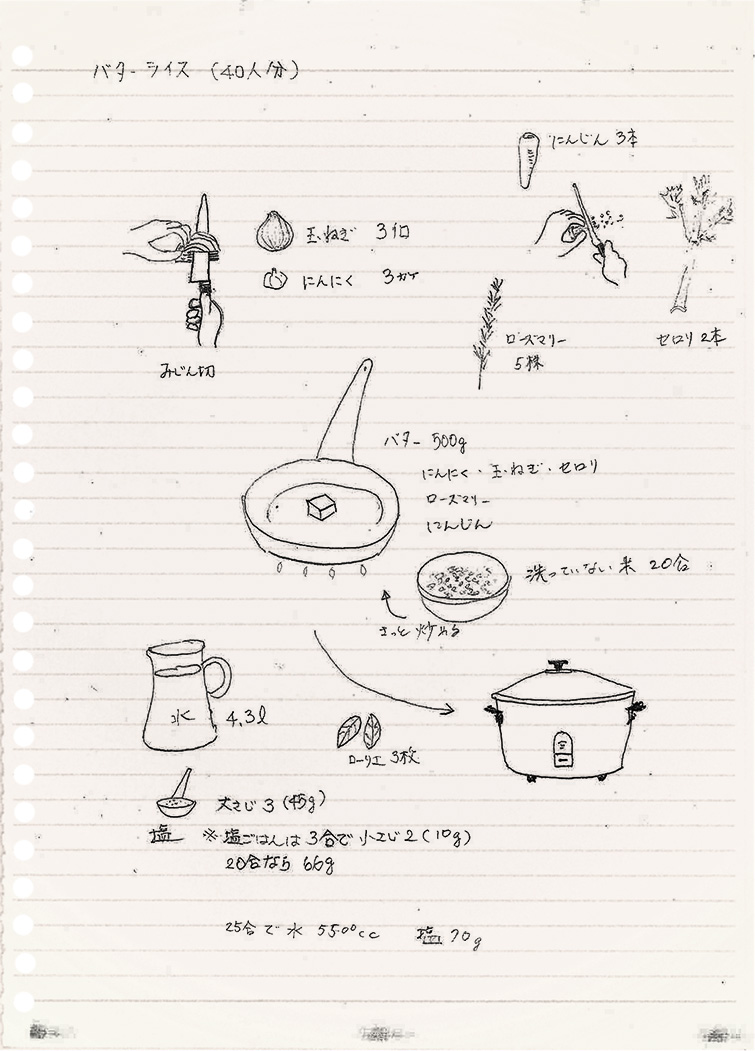 バターライス (40人分)
にんじん 3本
玉ねぎ 3個
にんにく 3ヶ
みじん切
ローズマリー
5株
セロリ 2本
バター 500g
にんにく・玉ねぎ・セロリ
ローズマリー
にんじん
洗っていない米 20合
さっと炒める
水
4.3ℓ
ローリエ 3枚
大さじ 3 (45g)
塩
※塩ごはんは3合で小さじ2(10g)
20合なら 66g
25合で水 5500cc 塩 70g